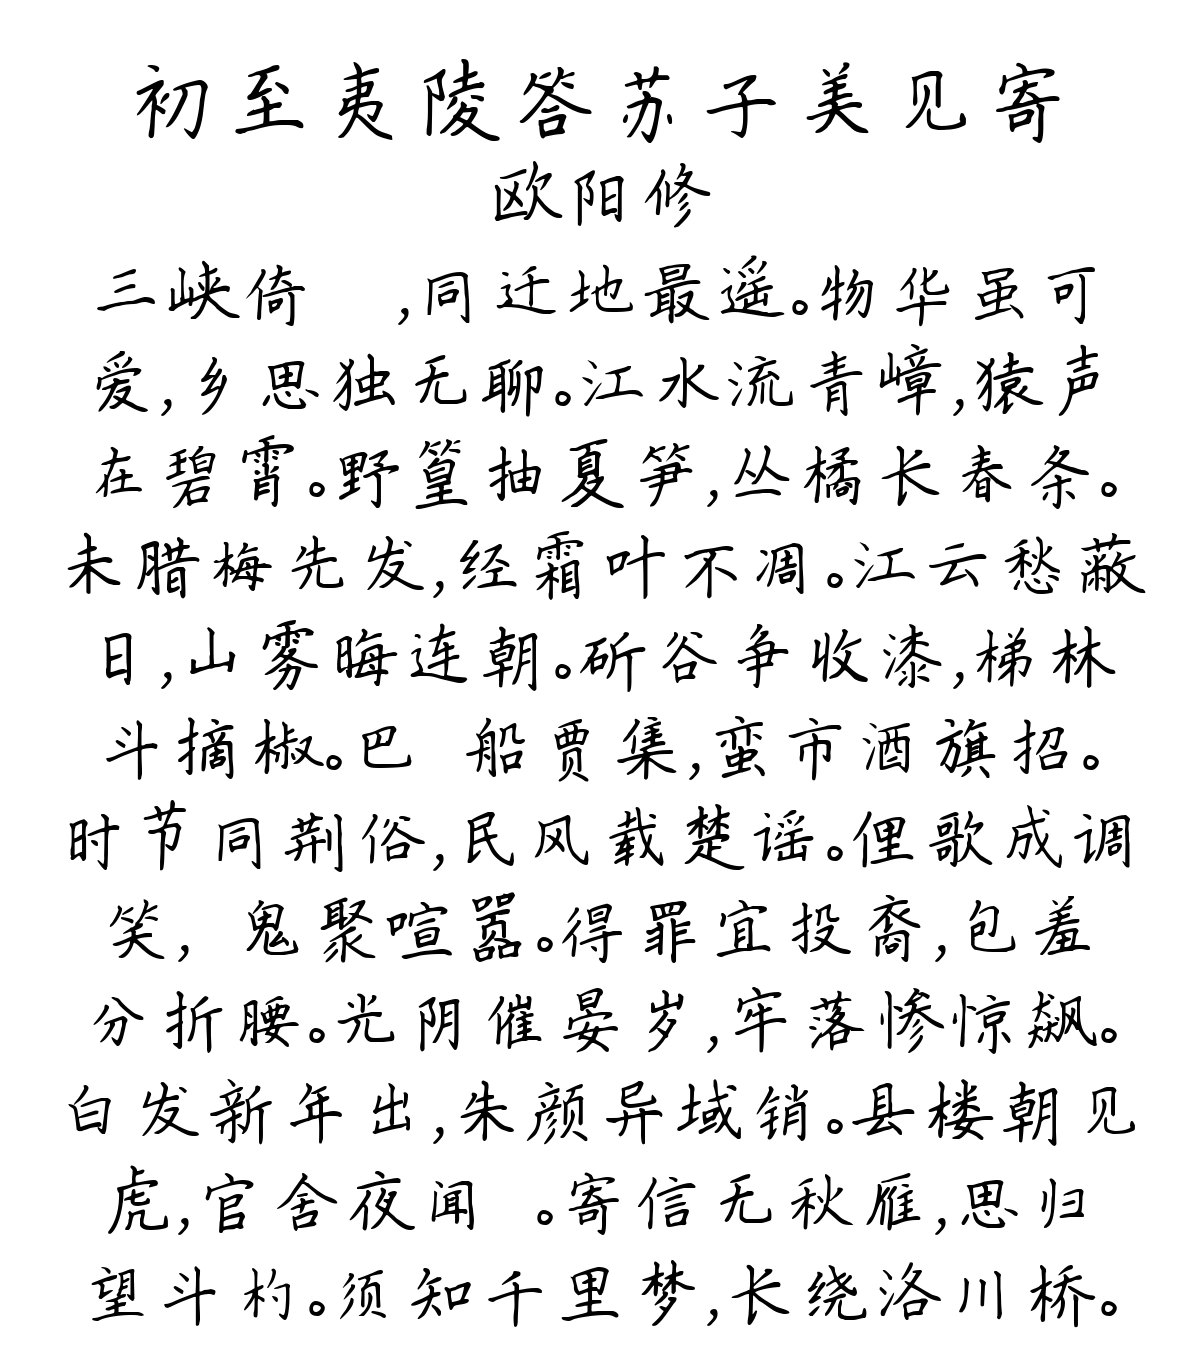 初至夷陵答苏子美见寄
欧阳修
三峡倚 ,同迁地最遥。物华虽可
爱,乡思独无聊。江水流青嶂,猿声
在碧霄。野篁抽夏笋,丛橘长春条。
未腊梅先发,经霜叶不凋。江云愁蔽
日,山雾晦连朝。斫谷争收漆,梯林
斗摘椒。巴 船贾集,蛮市酒旗招。
时节同荆俗,民风载楚谣。俚歌成调
笑, 鬼聚喧嚣。得罪宜投裔,包羞
分折腰。光阴催晏岁,牢落惨惊飙。
白发新年出,朱颜异域销。县楼朝见
虎,官舍夜闻 。寄信无秋雁,思归
望斗杓。须知千里梦,长绕洛川桥。